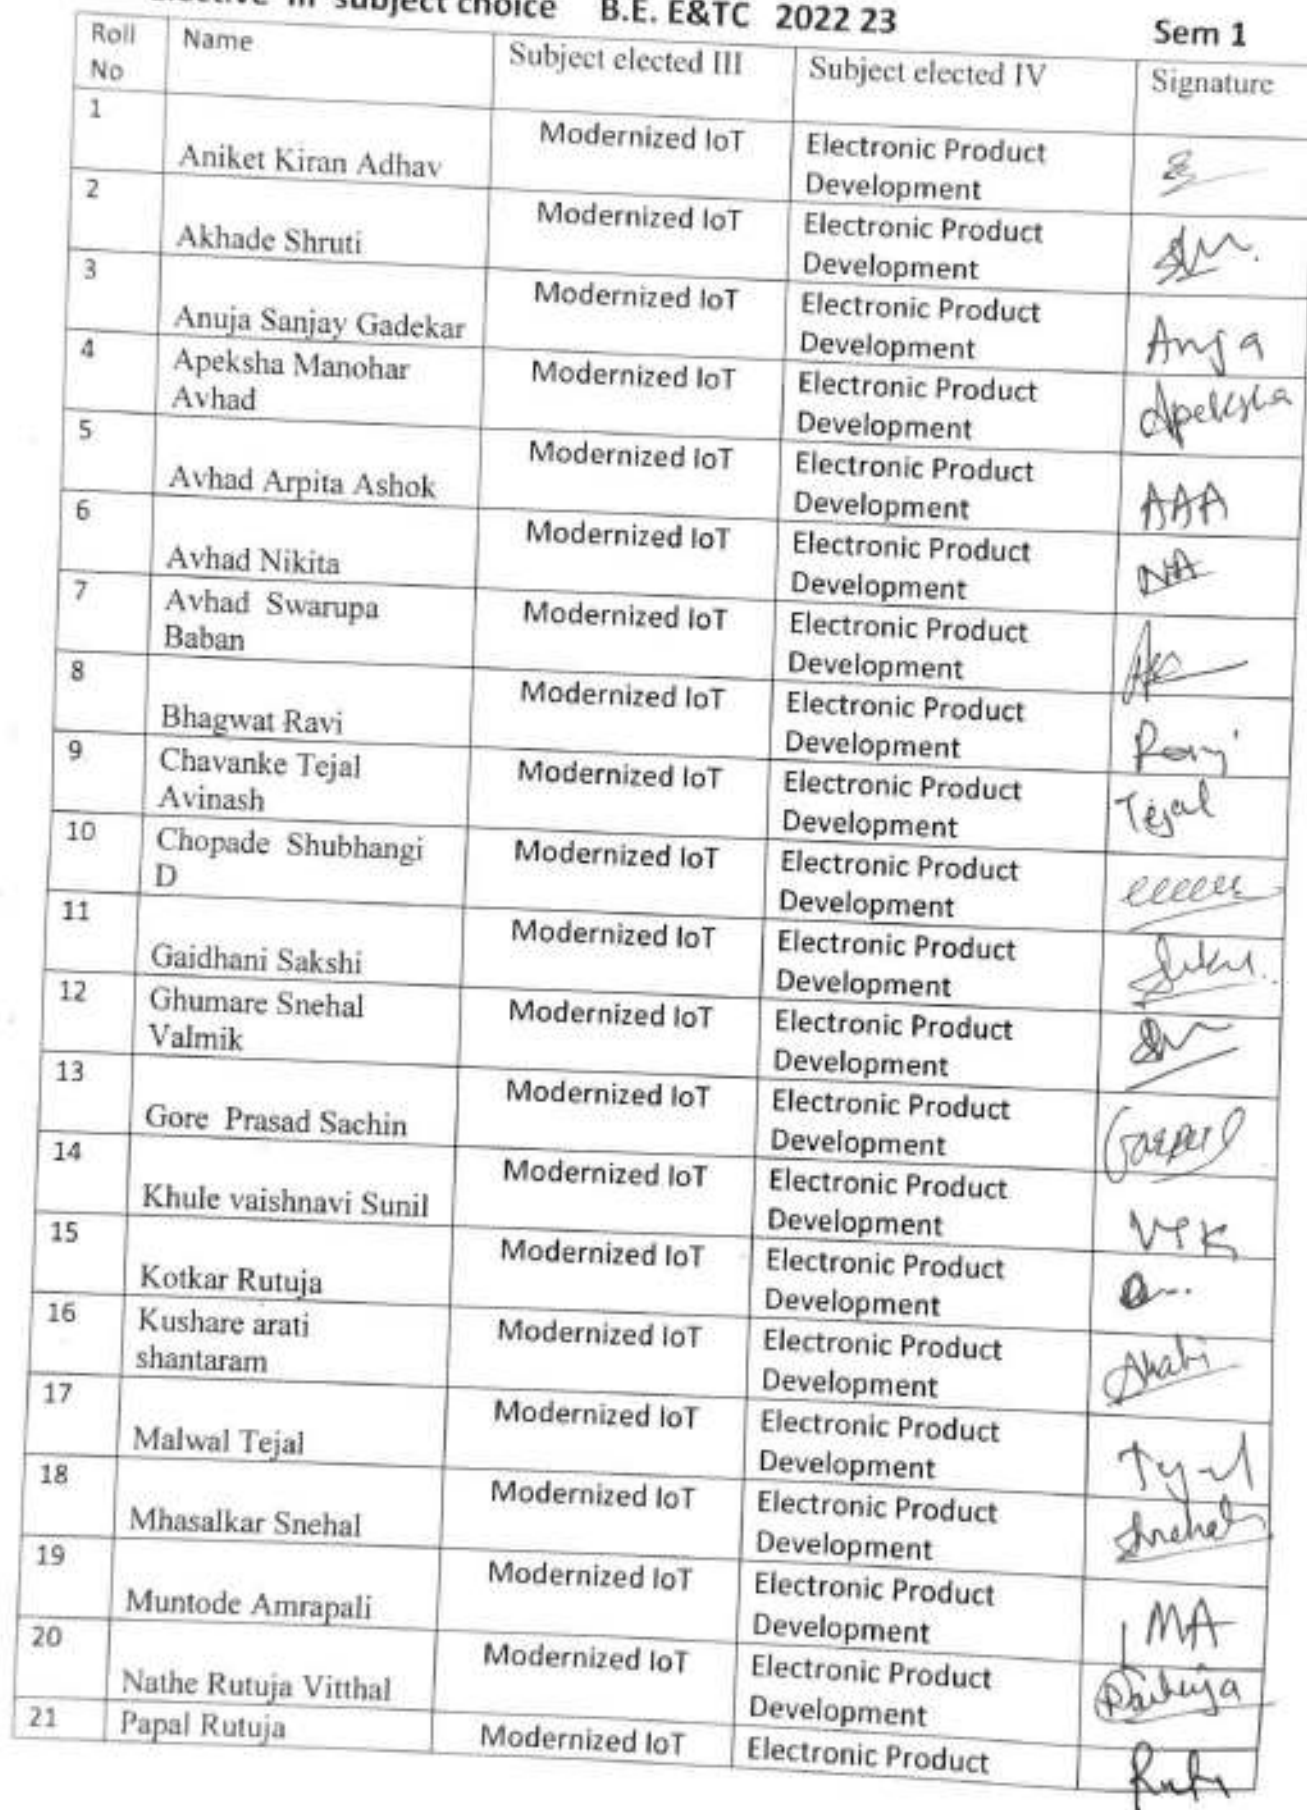 III subject choice B.E. E&TC 2022 23 Sem 1
Roll No Name Subject elected III Subject elected IV Signature
1 Aniket Kiran Adhav Modernized IoT Electronic Product
Development
2 Akhade Shruti Modernized IoT Electronic Product
Development
3 Anuja Sanjay Gadekar Modernized IoT Electronic Product
Development Anuja
4 Apeksha Manohar Modernized IoT Electronic Product
Avhad Development Apeksha
5 Avhad Arpita Ashok Modernized IoT Electronic Product
Development AAA
6 Avhad Nikita Modernized IoT Electronic Product
Development NA
7 Avhad Swarupa Modernized IoT Electronic Product
Baban Development
8 Bhagwat Ravi Modernized IoT Electronic Product
Development Ravi
9 Chavanke Tejal Modernized IoT Electronic Product
Avinash Development Tejal
10 Chopade Shubhangi Modernized IoT Electronic Product
D Development
11 Gaidhani Sakshi Modernized IoT Electronic Product
Development
12 Ghumare Snehal Modernized IoT Electronic Product
Valmik Development
13 Gore Prasad Sachin Modernized IoT Electronic Product
Development
14 Khule vaishnavi Sunil Modernized IoT Electronic Product
Development VSK
15 Kotkar Rutuja Modernized IoT Electronic Product
Development
16 Kushare arati Modernized IoT Electronic Product
shantaram Development
17 Malwal Tejal Modernized IoT Electronic Product
Development
18 Mhasalkar Snehal Modernized IoT Electronic Product
Development Snehal
19 Muntode Amrapali Modernized IoT Electronic Product
Development MA
20 Nathe Rutuja Vitthal Modernized IoT Electronic Product
Development
21 Papal Rutuja Modernized IoT Electronic Product